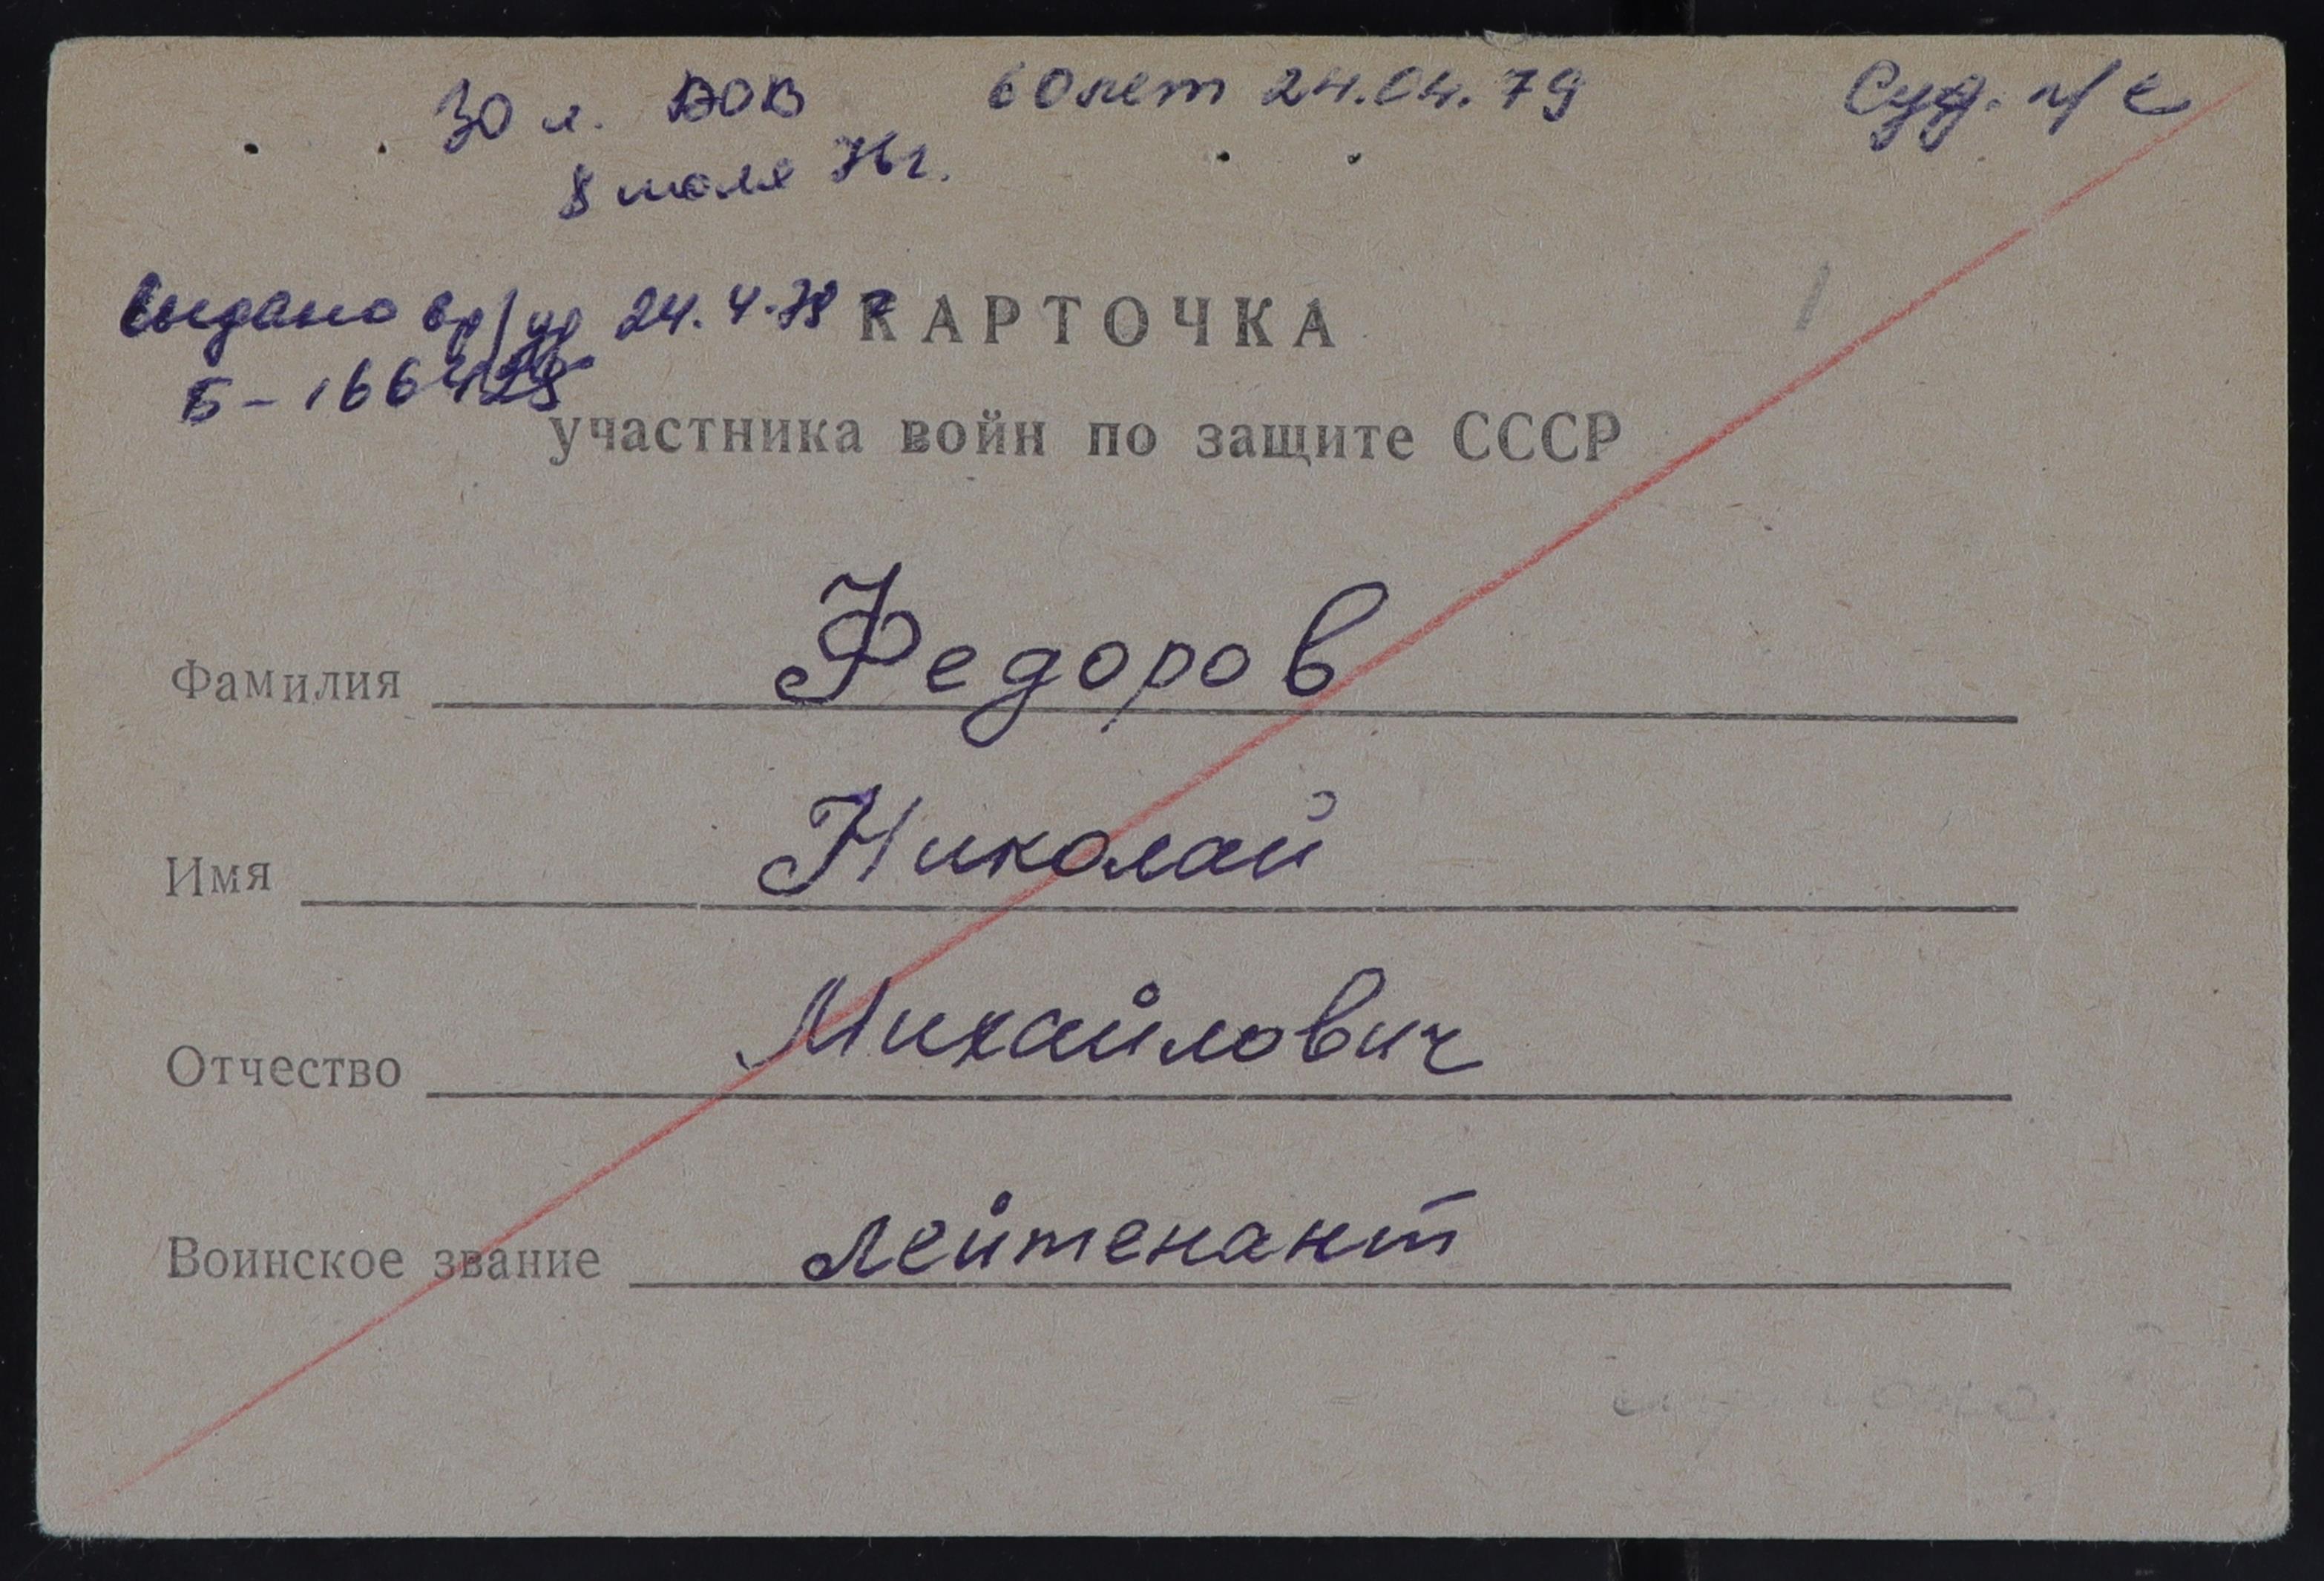 30 л. ВОВ 60 лет 24.04.79 Суд.
8 июля 76г.
Выдано вр/уд 24.4.78 г
КАРТОЧКА
Б-166428
участника войн по защите СССР
Фамилия Федоров
Имя Николай
Отчество Михайлович
Воинское звание лейтенант